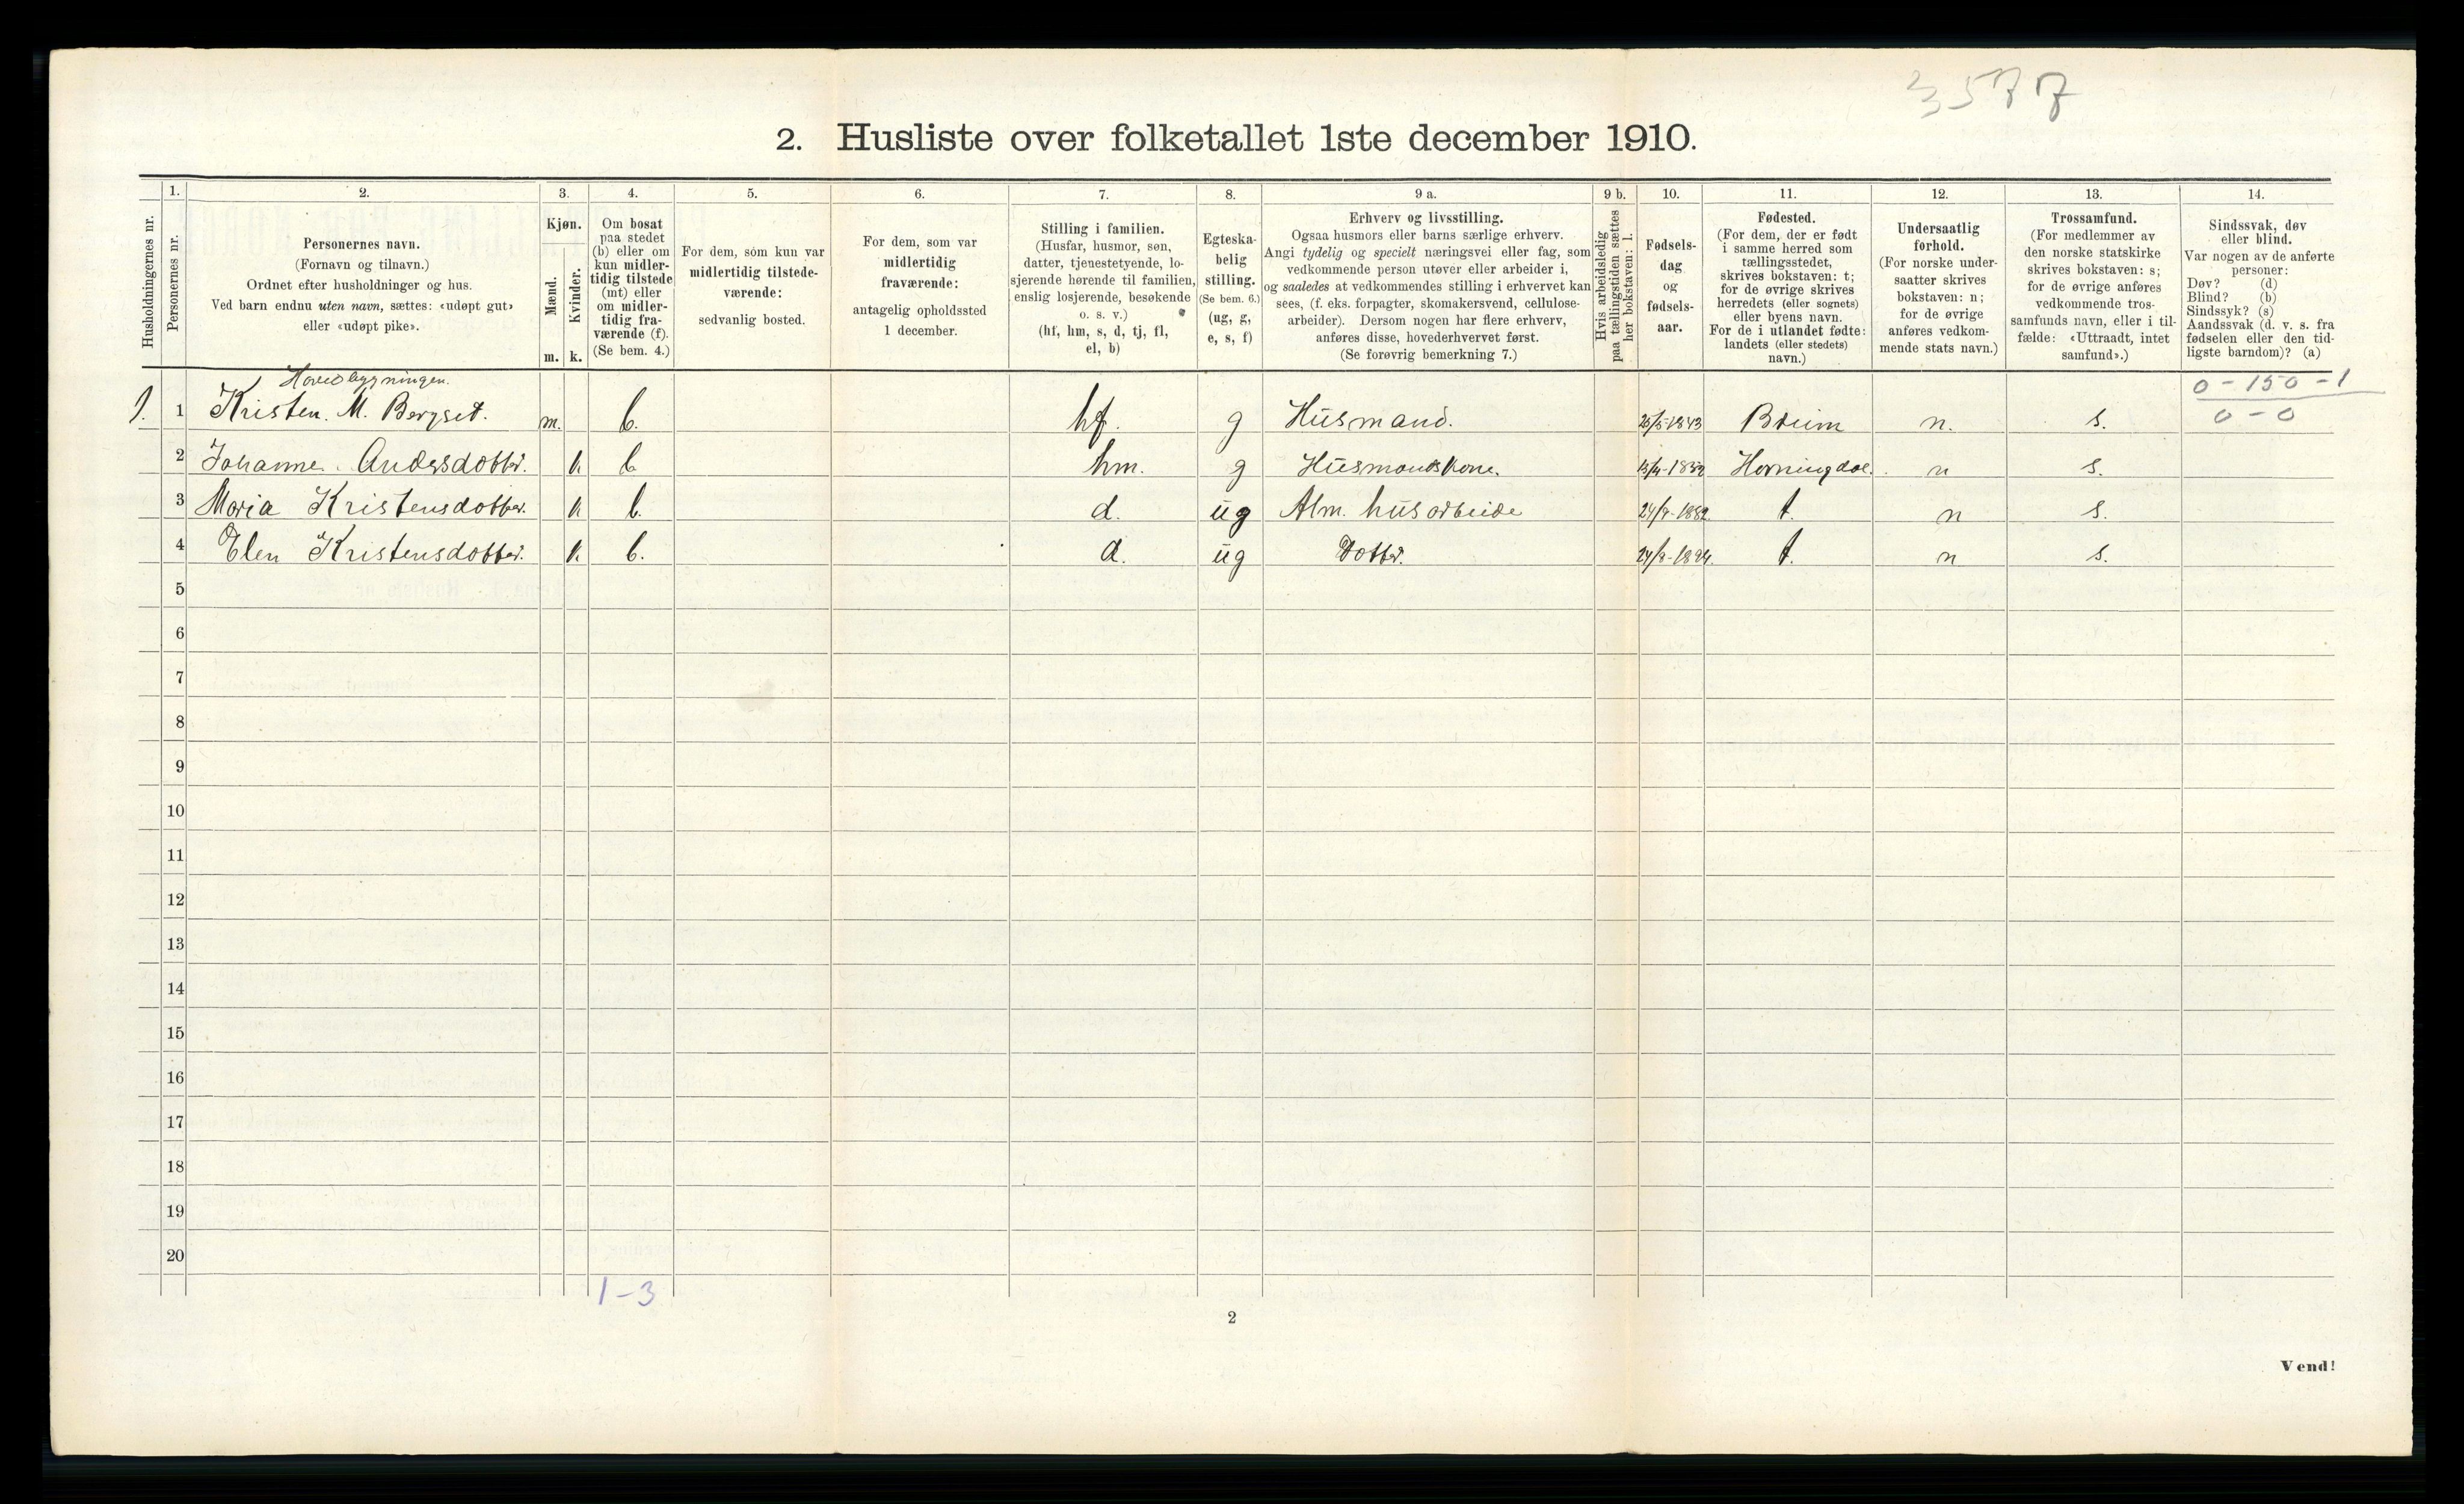 3577
2. Husliste over folketallet 1ste december 1910.
Husholdningernes nr.
1.
Personernes nr.
2.
Personernes navn.
(Fornavn og tilnavn.)
Ordnet efter husholdninger og hus.
Ved barn endnu uten navn, sættes: «udøpt gut»
eller «udøpt pike».
3.
Kjøn.
Mænd.
Kvinder.
m. k.
4.
Om bosat
paa stedet
(b) eller om
kun midler-
tidig tilstede
(mt) eller
om midler-
tidig fra-
værende (f).
(Se bem. 4.)
5.
For dem, som kun var
midlertidig tilstede-
værende:
sedvanlig bosted.
6.
For dem, som var
midlertidig
fraværende:
antagelig opholdssted
1 december.
7.
Stilling i familien.
(Husfar, husmor, søn,
datter, tjenestetyende, lo-
sjerende hørende til familien,
enslig losjerende, besøkende
o. s. v.)
(hf, hm, s, d, tj, fl,
el, b)
8.
Egteska-
belig
stilling.
(Se bem. 6.)
(ug, g,
e, s, f)
9 a.
Erhverv og livsstilling.
Ogsaa husmors eller barns særlige erhverv.
Angi tydelig og specielt næringsvei eller fag, som
vedkommende person utøver eller arbeider i,
og saaledes at vedkommendes stilling i erhvervet kan
sees, (f. eks. forpagter, skomakersvend, cellulose-
arbeider). Dersom nogen har flere erhverv,
anføres disse, hovederhvervet først.
(Se forøvrig bemerkning 7.)
9 b.
Hvis arbeidsledig
paa tællingstiden sættes
her bokstaven: l.
10.
Fødsels-
dag
og
fødsels-
aar.
11.
Fødested.
(For dem, der er født
i samme herred som
tællingsstedet,
skrives bokstaven: t;
for de øvrige skrives
herredets (eller sognets)
eller byens navn.
For de i utlandet fødte:
landets (eller stedets)
navn.)
12.
Undersaatlig
forhold.
(For norske under-
saatter skrives
bokstaven: n;
for de øvrige
anføres vedkom-
mende stats navn.)
13.
Trossamfund.
(For medlemmer av
den norske statskirke
skrives bokstaven: s;
for de øvrige anføres
vedkommende tros-
samfunds navn, eller i til-
fælde: «Uttraadt, intet
samfund».)
14.
Sindssvak, døv
eller blind.
Var nogen av de anførte
personer:
Døv? (d)
Blind? (b)
Sindssyk? (s)
Aandssvak (d. v. s. fra
fødselen eller den tid-
ligste barndom)? (a)
Hovedbygningen.
0 - 150 - 1
0 - 0
1. 1 Kristen. M. Bergset. m. b. hf. g Husmand. 25/5-1843 Breim n. s.
2 Johanne Andersdotter. k b hm. g Husmandskone. Horningdal. n s.
3 Maria Kristensdotter. k b. d. ug Alm. husarbeide t. n s.
4 Elen Kristensdotter. k b. d. ug Dotter. t. n s.
5
6
7
8
9
10
11
12
13
14
15
16
17
18
19
20
1-3
2
Vend!